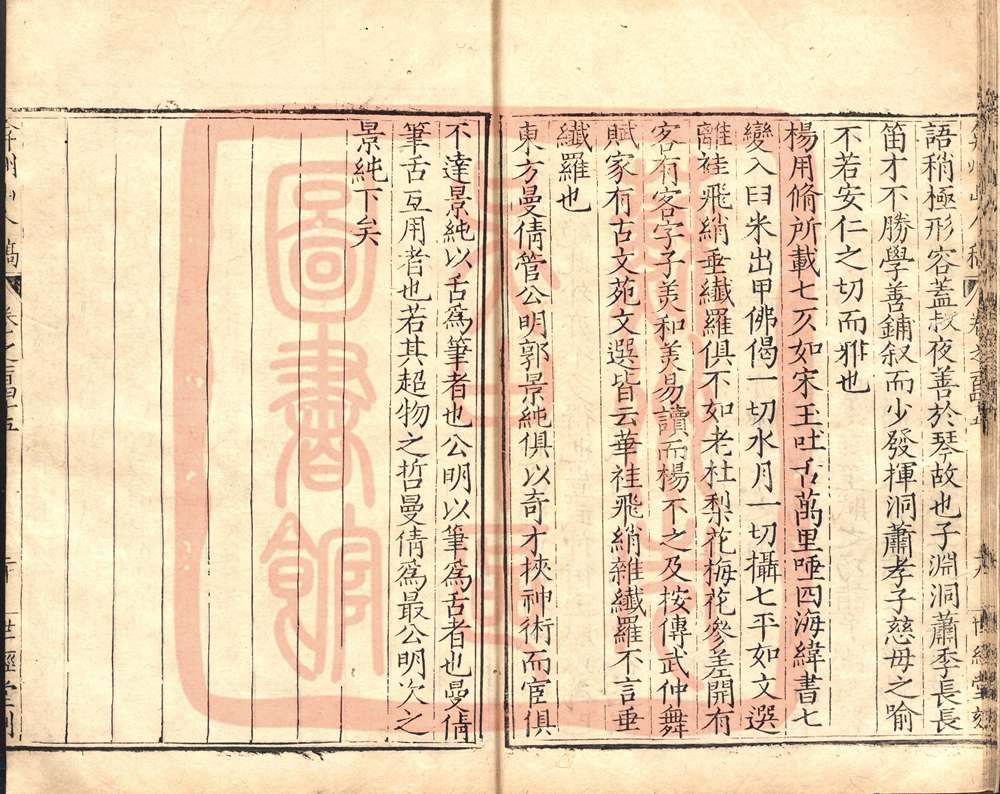 語稍極形容蓋叔夜善於琴故也子淵洞蕭季長長
笛才不勝學善鋪叙而少發揮洞蕭孝子慈母之喻
不若安仁之切而雅也
楊用脩所載七仄如宋玉吐舌萬里唾四海緯書七
變入臼米出甲佛偈一切水月一切攝七平如文選
離袿飛綃垂纖羅俱不如老杜梨花梅花參差開有
客有客字子美和美易讀而楊不之及桉傳武仲舞
賦家有古文苑文選皆云華袿飛綃雜纖羅不言垂
纖羅也
東方曼倩管公明郭景純俱以奇才挾神術而宦俱
不達景純以舌爲筆者也公明以筆爲舌者也曼倩
筆舌互用者也若其超物之哲曼倩爲最公明次之
景純下矣
圖書館